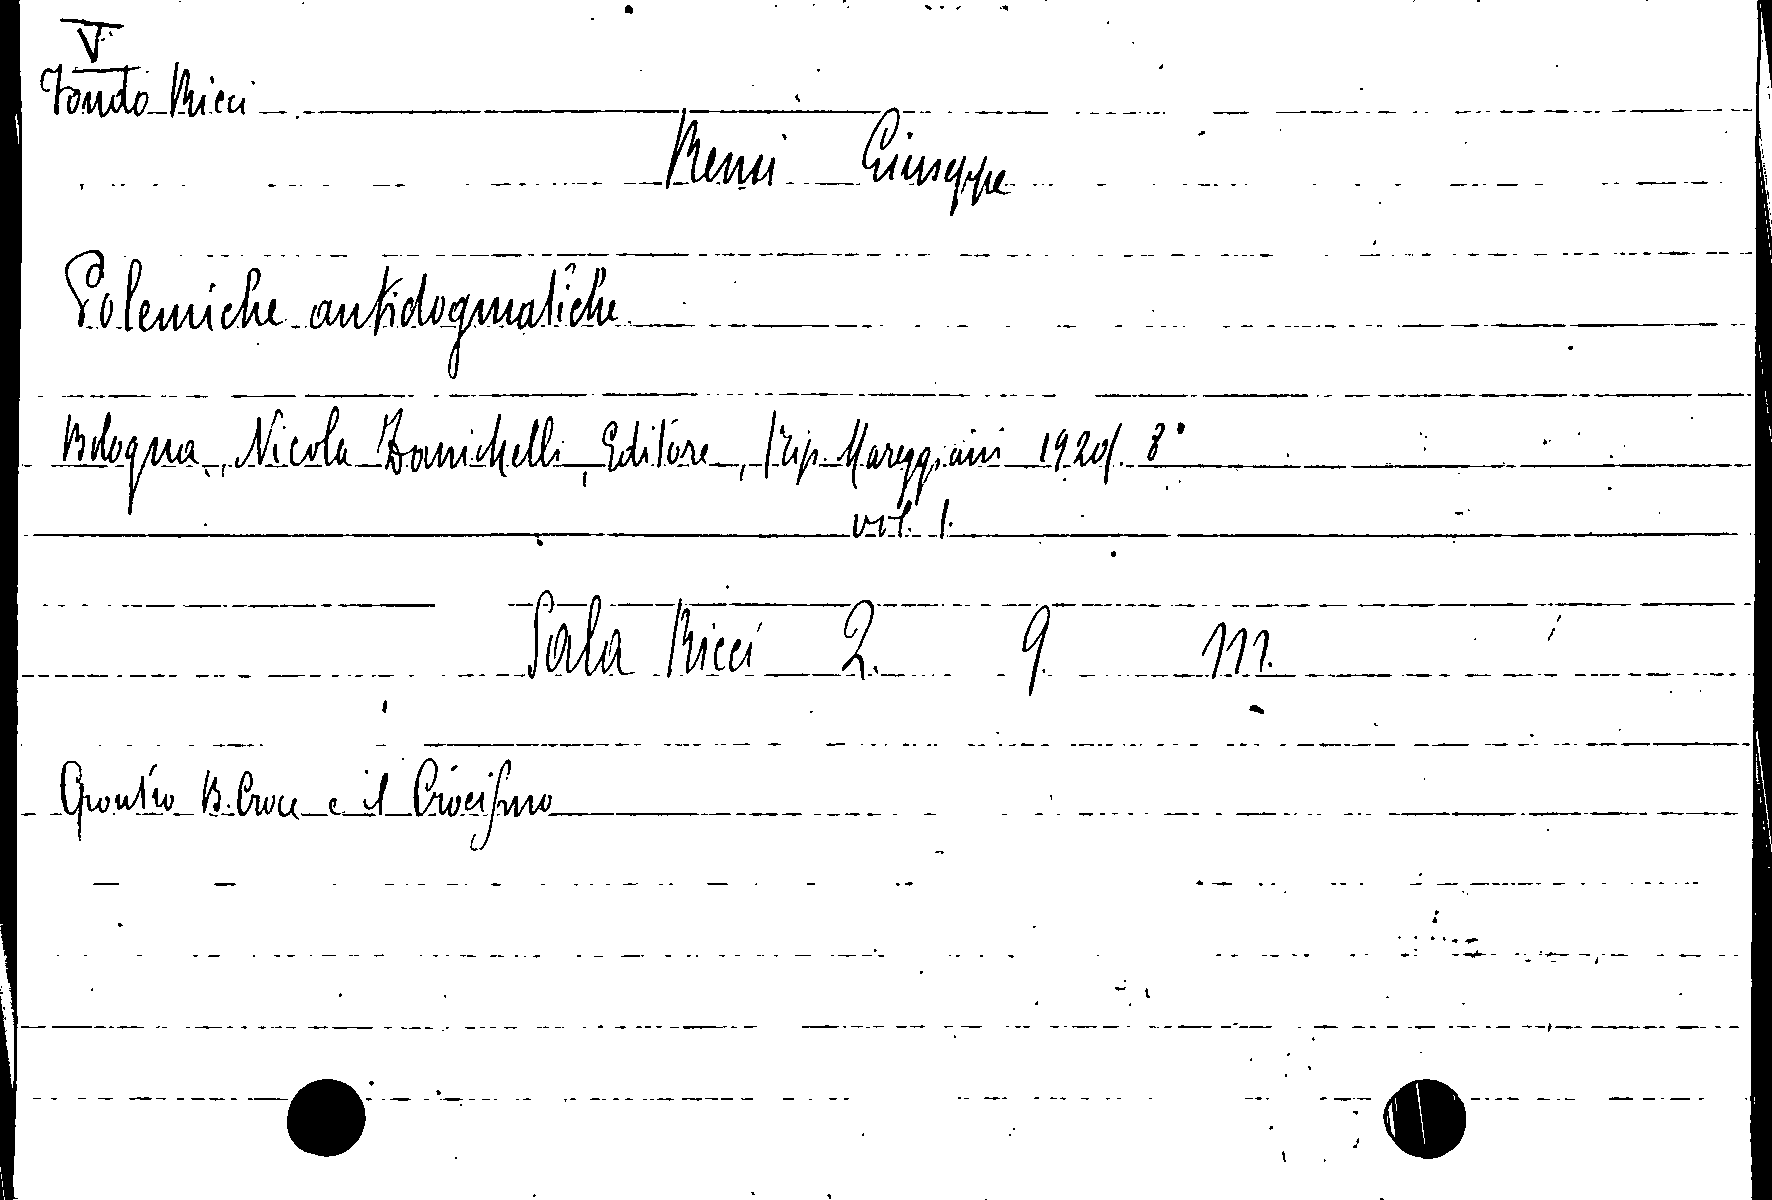 V
Fondo Ricci
Rensi Giuseppe
Polemiche antidogmatiche
Bologna, Nicola Zanichelli, Editore, (Tip. Mareggiani 1920). 8°
vol. 1.
Sala Ricci 2. 9. m.
Contro B. Croce e il Crocismo